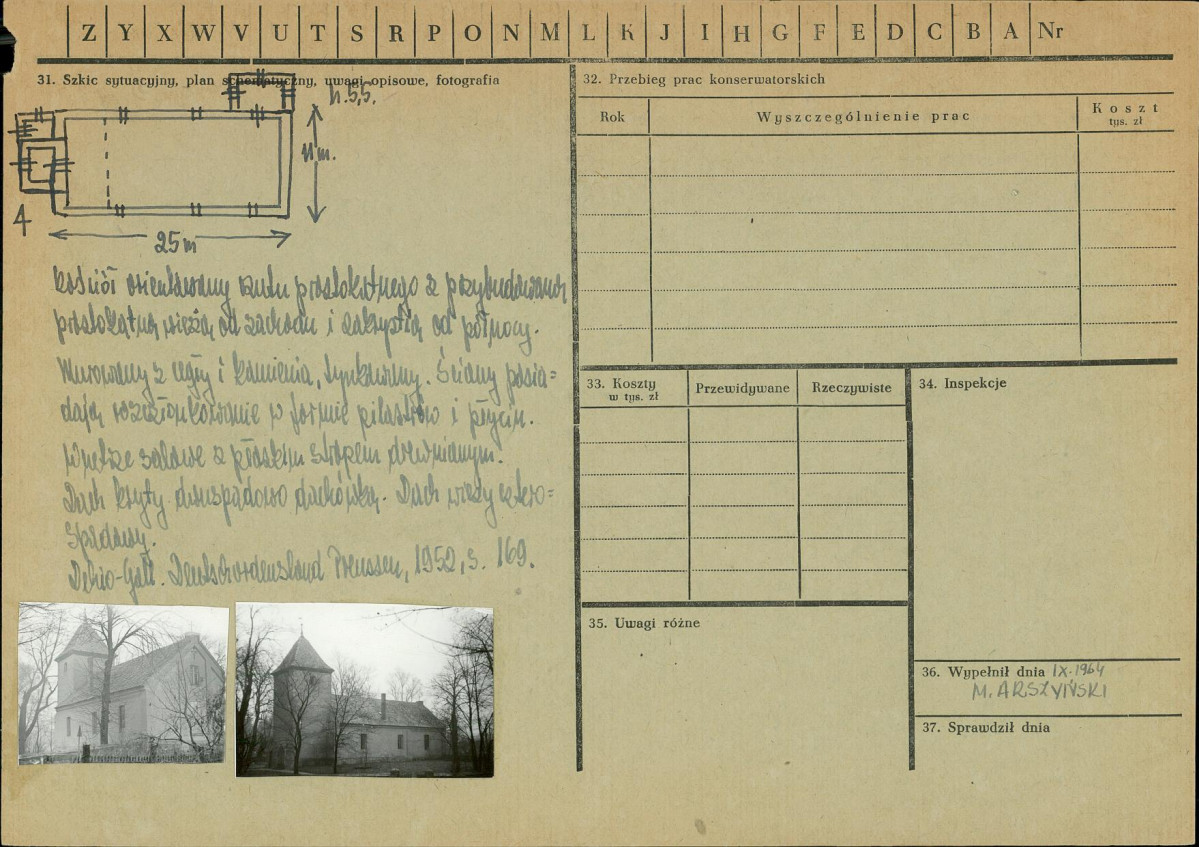 Z Y X W V U T S R P O N M L K J I H G F E D C B A Nr
31. Szkic sytuacyjny, plan schematyczny, uwagi opisowe, fotografia
h. 5,5.
11 m.
4
25 m
Kościół orientowany rzutu prostokątnego z przybudowaną
prostokątną wieżą od zachodu i zakrystią od północy.
Murowany z cegły i kamienia, tynkowany. Ściany posia=
dają rozczłonkowanie w formie pilastrów i płycin.
Wnętrze salowe z płaskim stropem drewnianym.
Dach kryty dwuspadowo dachówką. Dach wieży cztero=
spadowy.
Dehio-Gall. Deutschordensland Preussen, 1952, s. 169.
32. Przebieg prac konserwatorskich
Rok
Wyszczególnienie prac
Koszt
tys. zł
33. Koszty
w tys. zł
Przewidywane
Rzeczywiste
34. Inspekcje
35. Uwagi różne
36. Wypełnił dnia IX.1964
M. ARSZYŃSKI
37. Sprawdził dnia